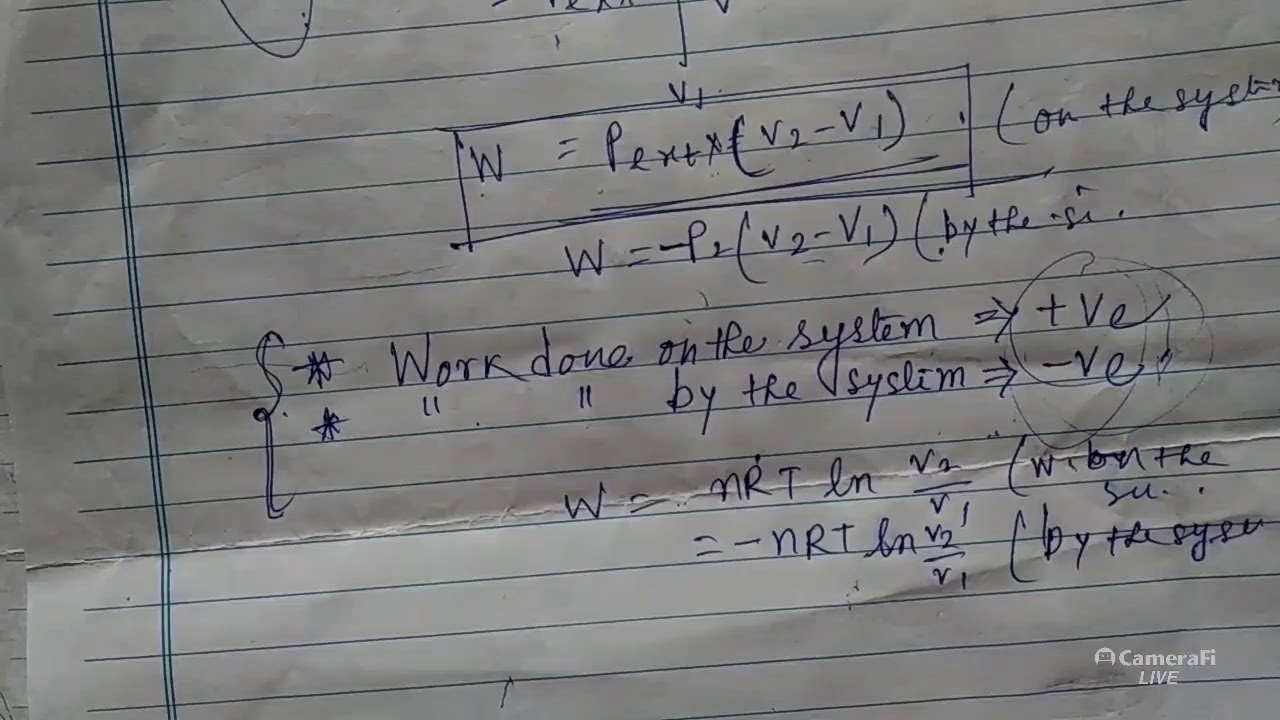 V1
W = Pext × (V2 - V1) (on the system
W = -P2 (V2 - V1) (by the
* Work done on the system ⇒ +Ve
* " " by the system ⇒ -Ve
W = nRT ln V2/V1 (W. on the
= -nRT ln V2/V1 (by the
CameraFi
LIVE